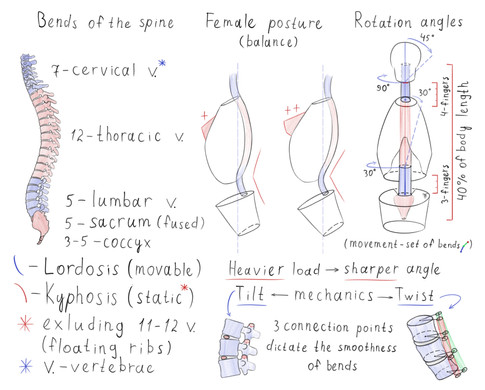 Bends of the spine
Female posture
(balance)
Rotation angles
7-cervical v.*
12-thoracic v.
5-lumbar v.
5-sacrum (fused)
3-5-coccyx
+
++
45°
90°
30°
30°
4-fingers
3-fingers
40% of body length
(movement-set of bends)
-Lordosis (movable)
-Kyphosis (static*)
* exluding 11-12 v.
(floating ribs)
* v.-vertebrae
Heavier load → sharper angle
Tilt ← mechanics → Twist
3 connection points
dictate the smoothness
of bends